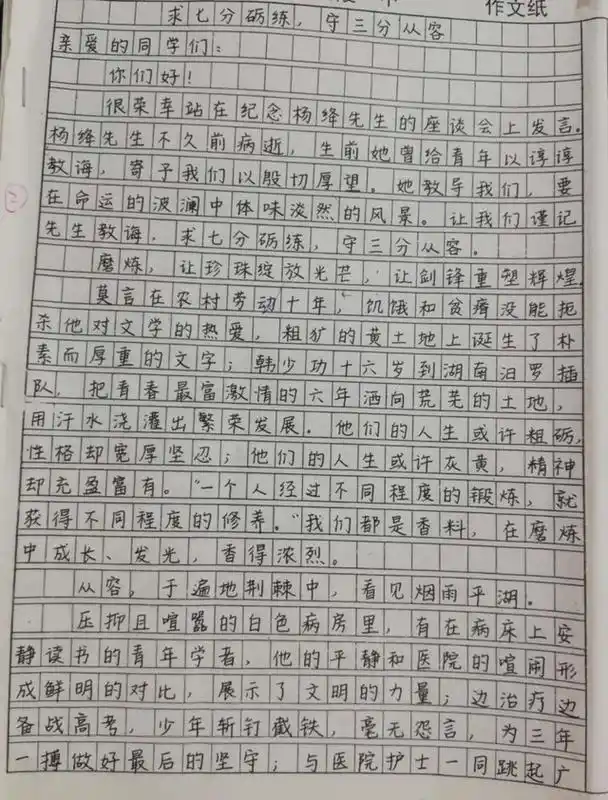 作文纸
求七分砺练，守三分从容
亲爱的同学们：
你们好！
很荣幸站在纪念杨绛先生的座谈会上发言。
杨绛先生不久前病逝，生前她曾给青年以谆谆
教诲，寄予我们以殷切厚望。她教导我们，要
在命运的波澜中体味淡然的风景。让我们谨记
先生教诲，求七分砺练，守三分从容。
磨炼，让珍珠绽放光芒，让剑锋重塑辉煌。
莫言在农村劳动十年，饥饿和贫瘠没能扼
杀他对文学的热爱，粗犷的黄土地上诞生了朴
素而厚重的文字；韩少功十六岁到湖南汨罗插
队，把青春最富激情的六年洒向荒芜的土地，
用汗水浇灌出繁荣发展。他们的人生或许粗砺，
性格却宽厚坚忍；他们的人生或许灰黄，精神
却充盈富有。“一个人经过不同程度的锻炼，就
获得不同程度的修养。”我们都是香料，在磨炼
中成长、发光，香得浓烈。
从容，于遍地荆棘中，看见烟雨平湖。
压抑且喧嚣的白色病房里，有在病床上安
静读书的青年学者，他的平静和医院的喧闹形
成鲜明的对比，展示了文明的力量；边治疗边
备战高考，少年斩钉截铁，毫无怨言，为三年
一搏做好最后的坚守；与医院护士一同跳起广